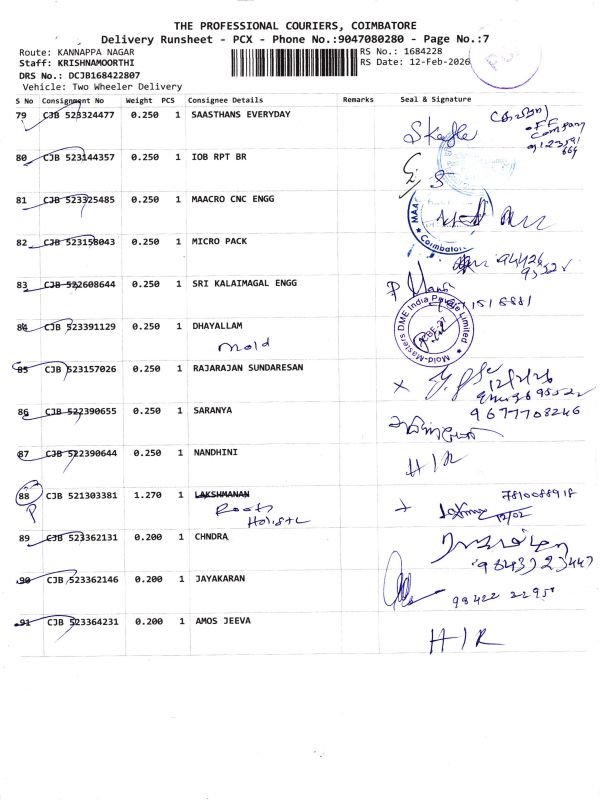 THE PROFESSIONAL COURIERS, COIMBATORE
Delivery Runsheet - PCX - Phone No.:9047080280 - Page No.:7
Route: KANNAPPA NAGAR RS No.: 1684228
Staff: KRISHNAMOORTHI RS Date: 12-Feb-2026
DRS No.: DCJB168422807
Vehicle: Two Wheeler Delivery
S No Consignment No Weight PCS Consignee Details Remarks Seal & Signature
79 CJB 523324477 0.250 1 SAASTHANS EVERYDAY
80 CJB 523144357 0.250 1 IOB RPT BR
81 CJB 523325485 0.250 1 MAACRO CNC ENGG
Coimbatore
82 CJB 523158043 0.250 1 MICRO PACK
83 CJB 522608644 0.250 1 SRI KALAIMAGAL ENGG
84 CJB 523391129 0.250 1 DHAYALLAM
Mold
Mold-Masters DME India Private Limited
85 CJB 523157026 0.250 1 RAJARAJAN SUNDARESAN
12/2/26
86 CJB 522390655 0.250 1 SARANYA
9677708246
87 CJB 522390644 0.250 1 NANDHINI
H/R
88 CJB 521303381 1.270 1 LAKSHMANAN
P
Roots
89 CJB 523362131 0.200 1 CHNDRA
90 CJB 523362146 0.200 1 JAYAKARAN
91 CJB 523364231 0.200 1 AMOS JEEVA
H/R